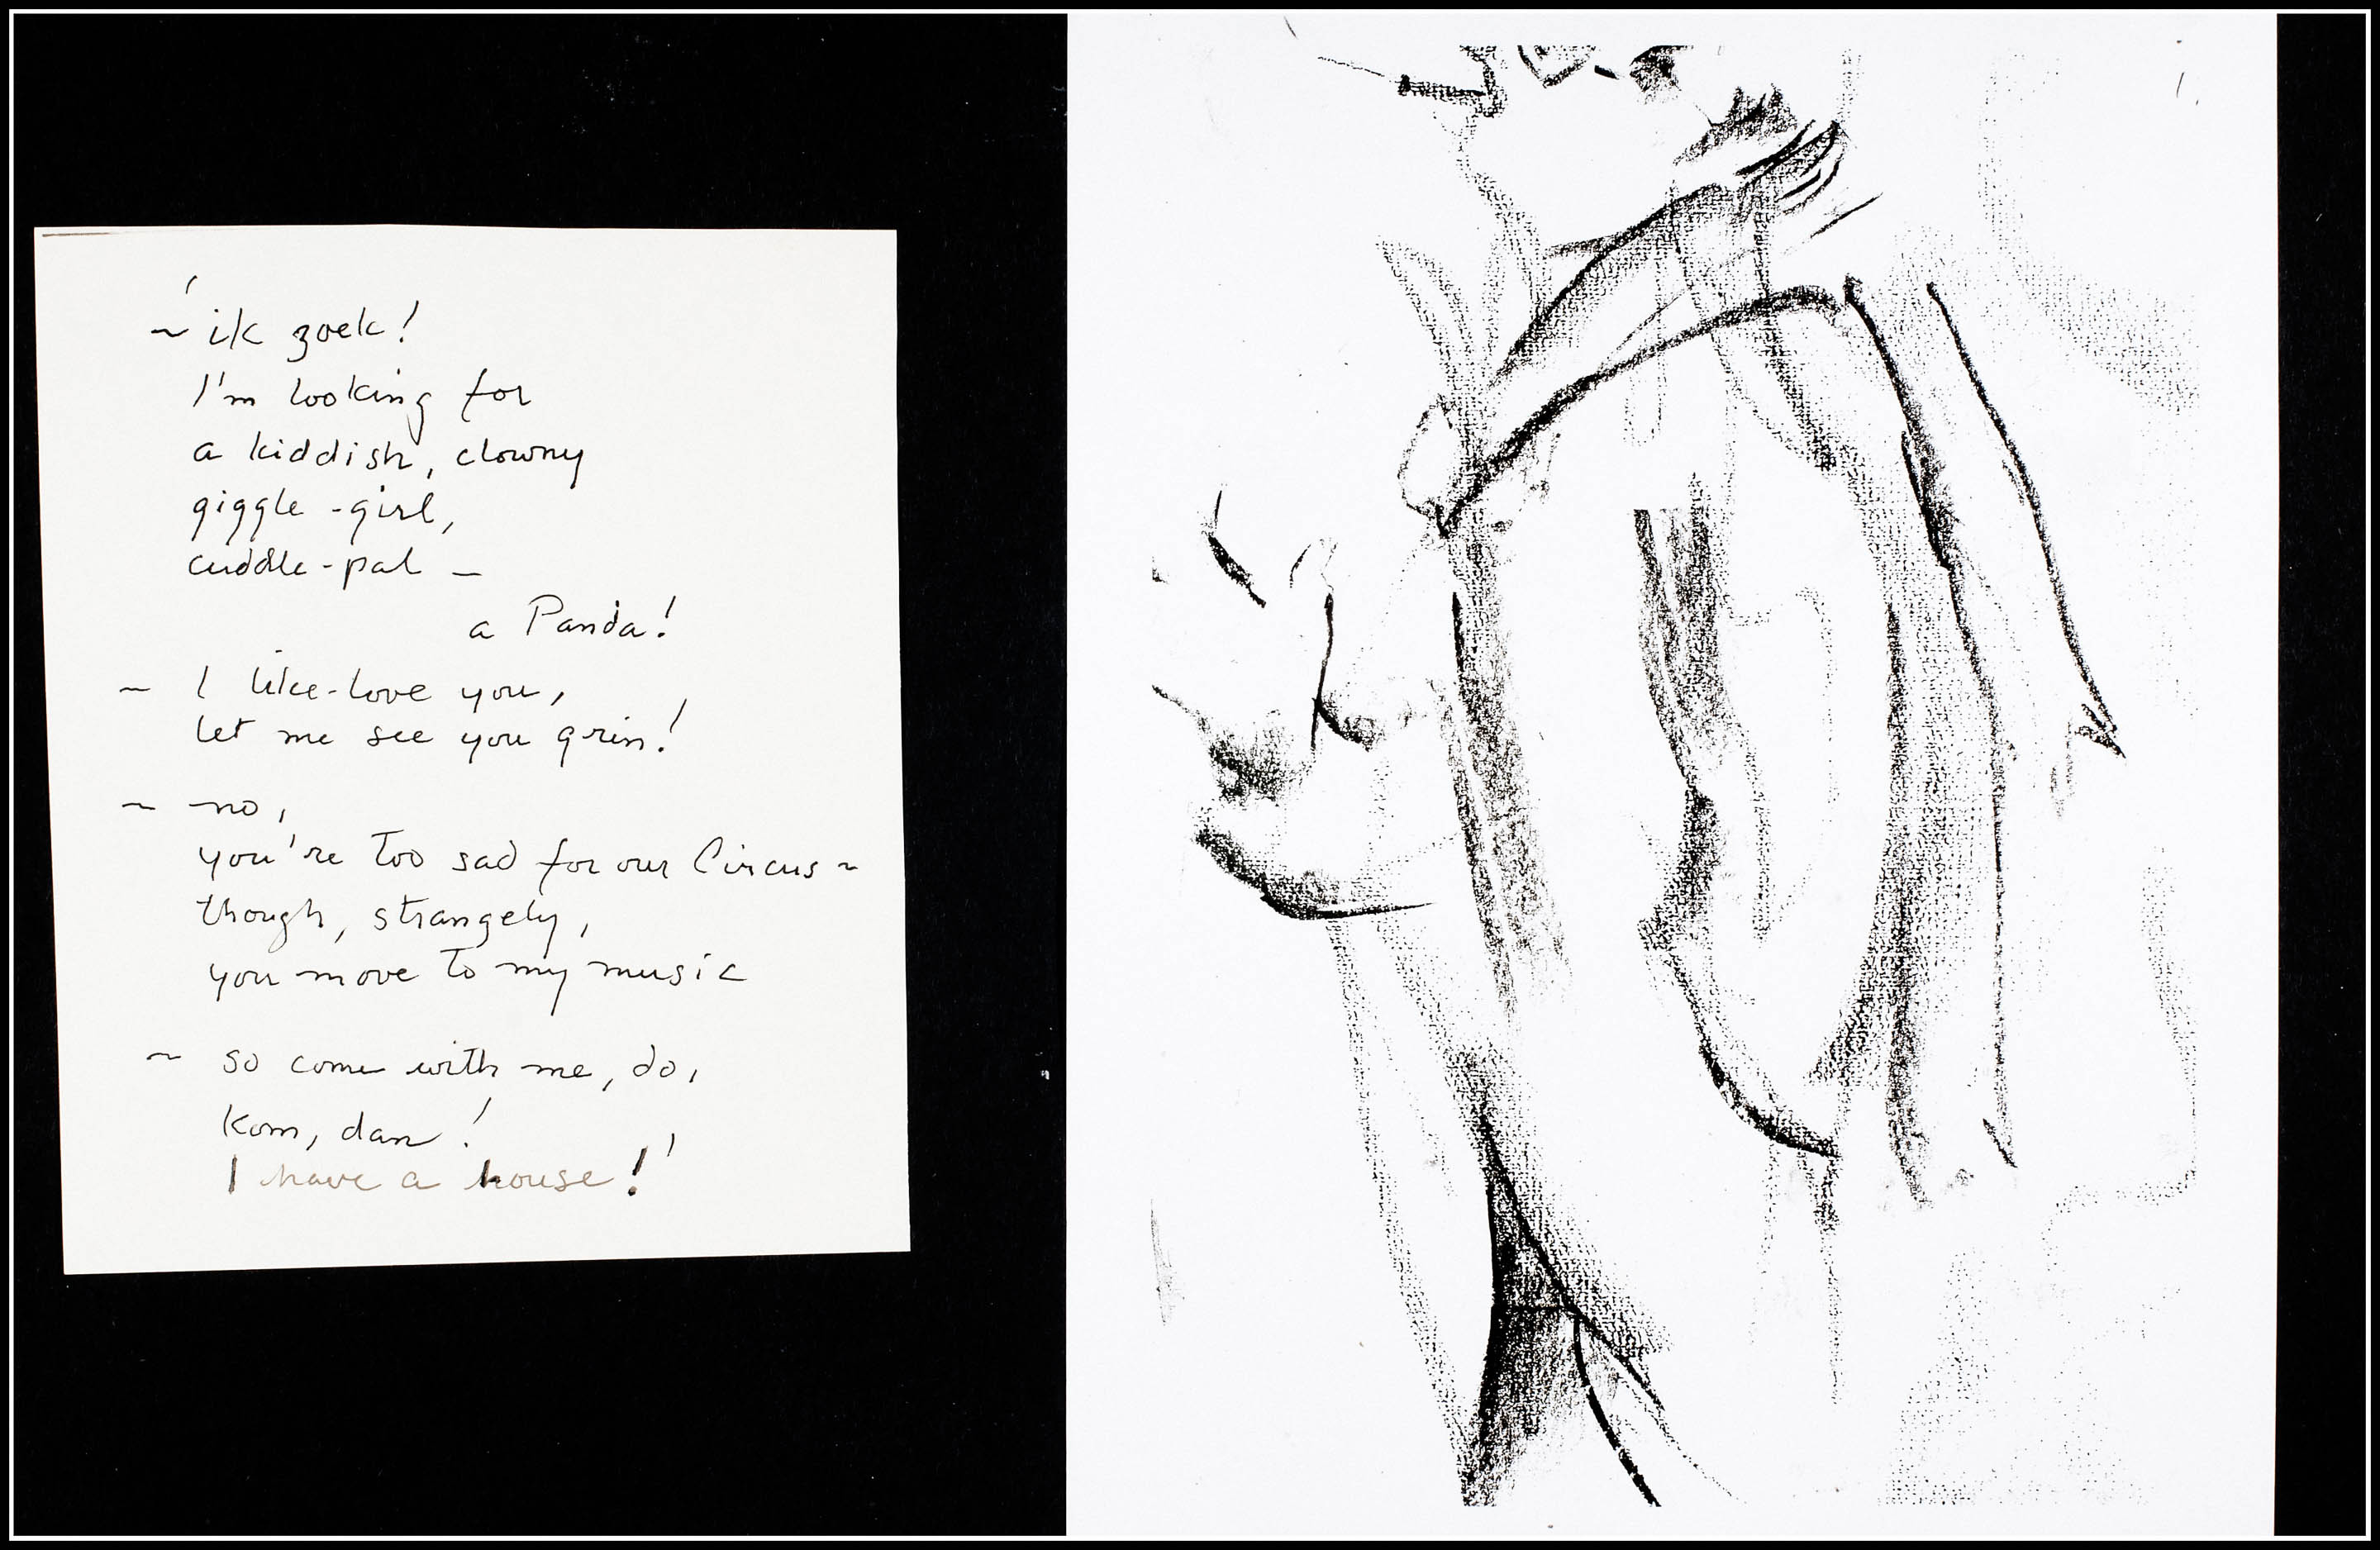 ~ 'ik zoek!
I'm looking for
a kiddish, clowny
giggle-girl,
cuddle-pal –
a Panda!
~ I like-love you,
let me see you grin!
~ no,
you're too sad for our Circus ~
though, strangely,
you move to my music
~ so come with me, do,
kom, dan!
I have a house!'